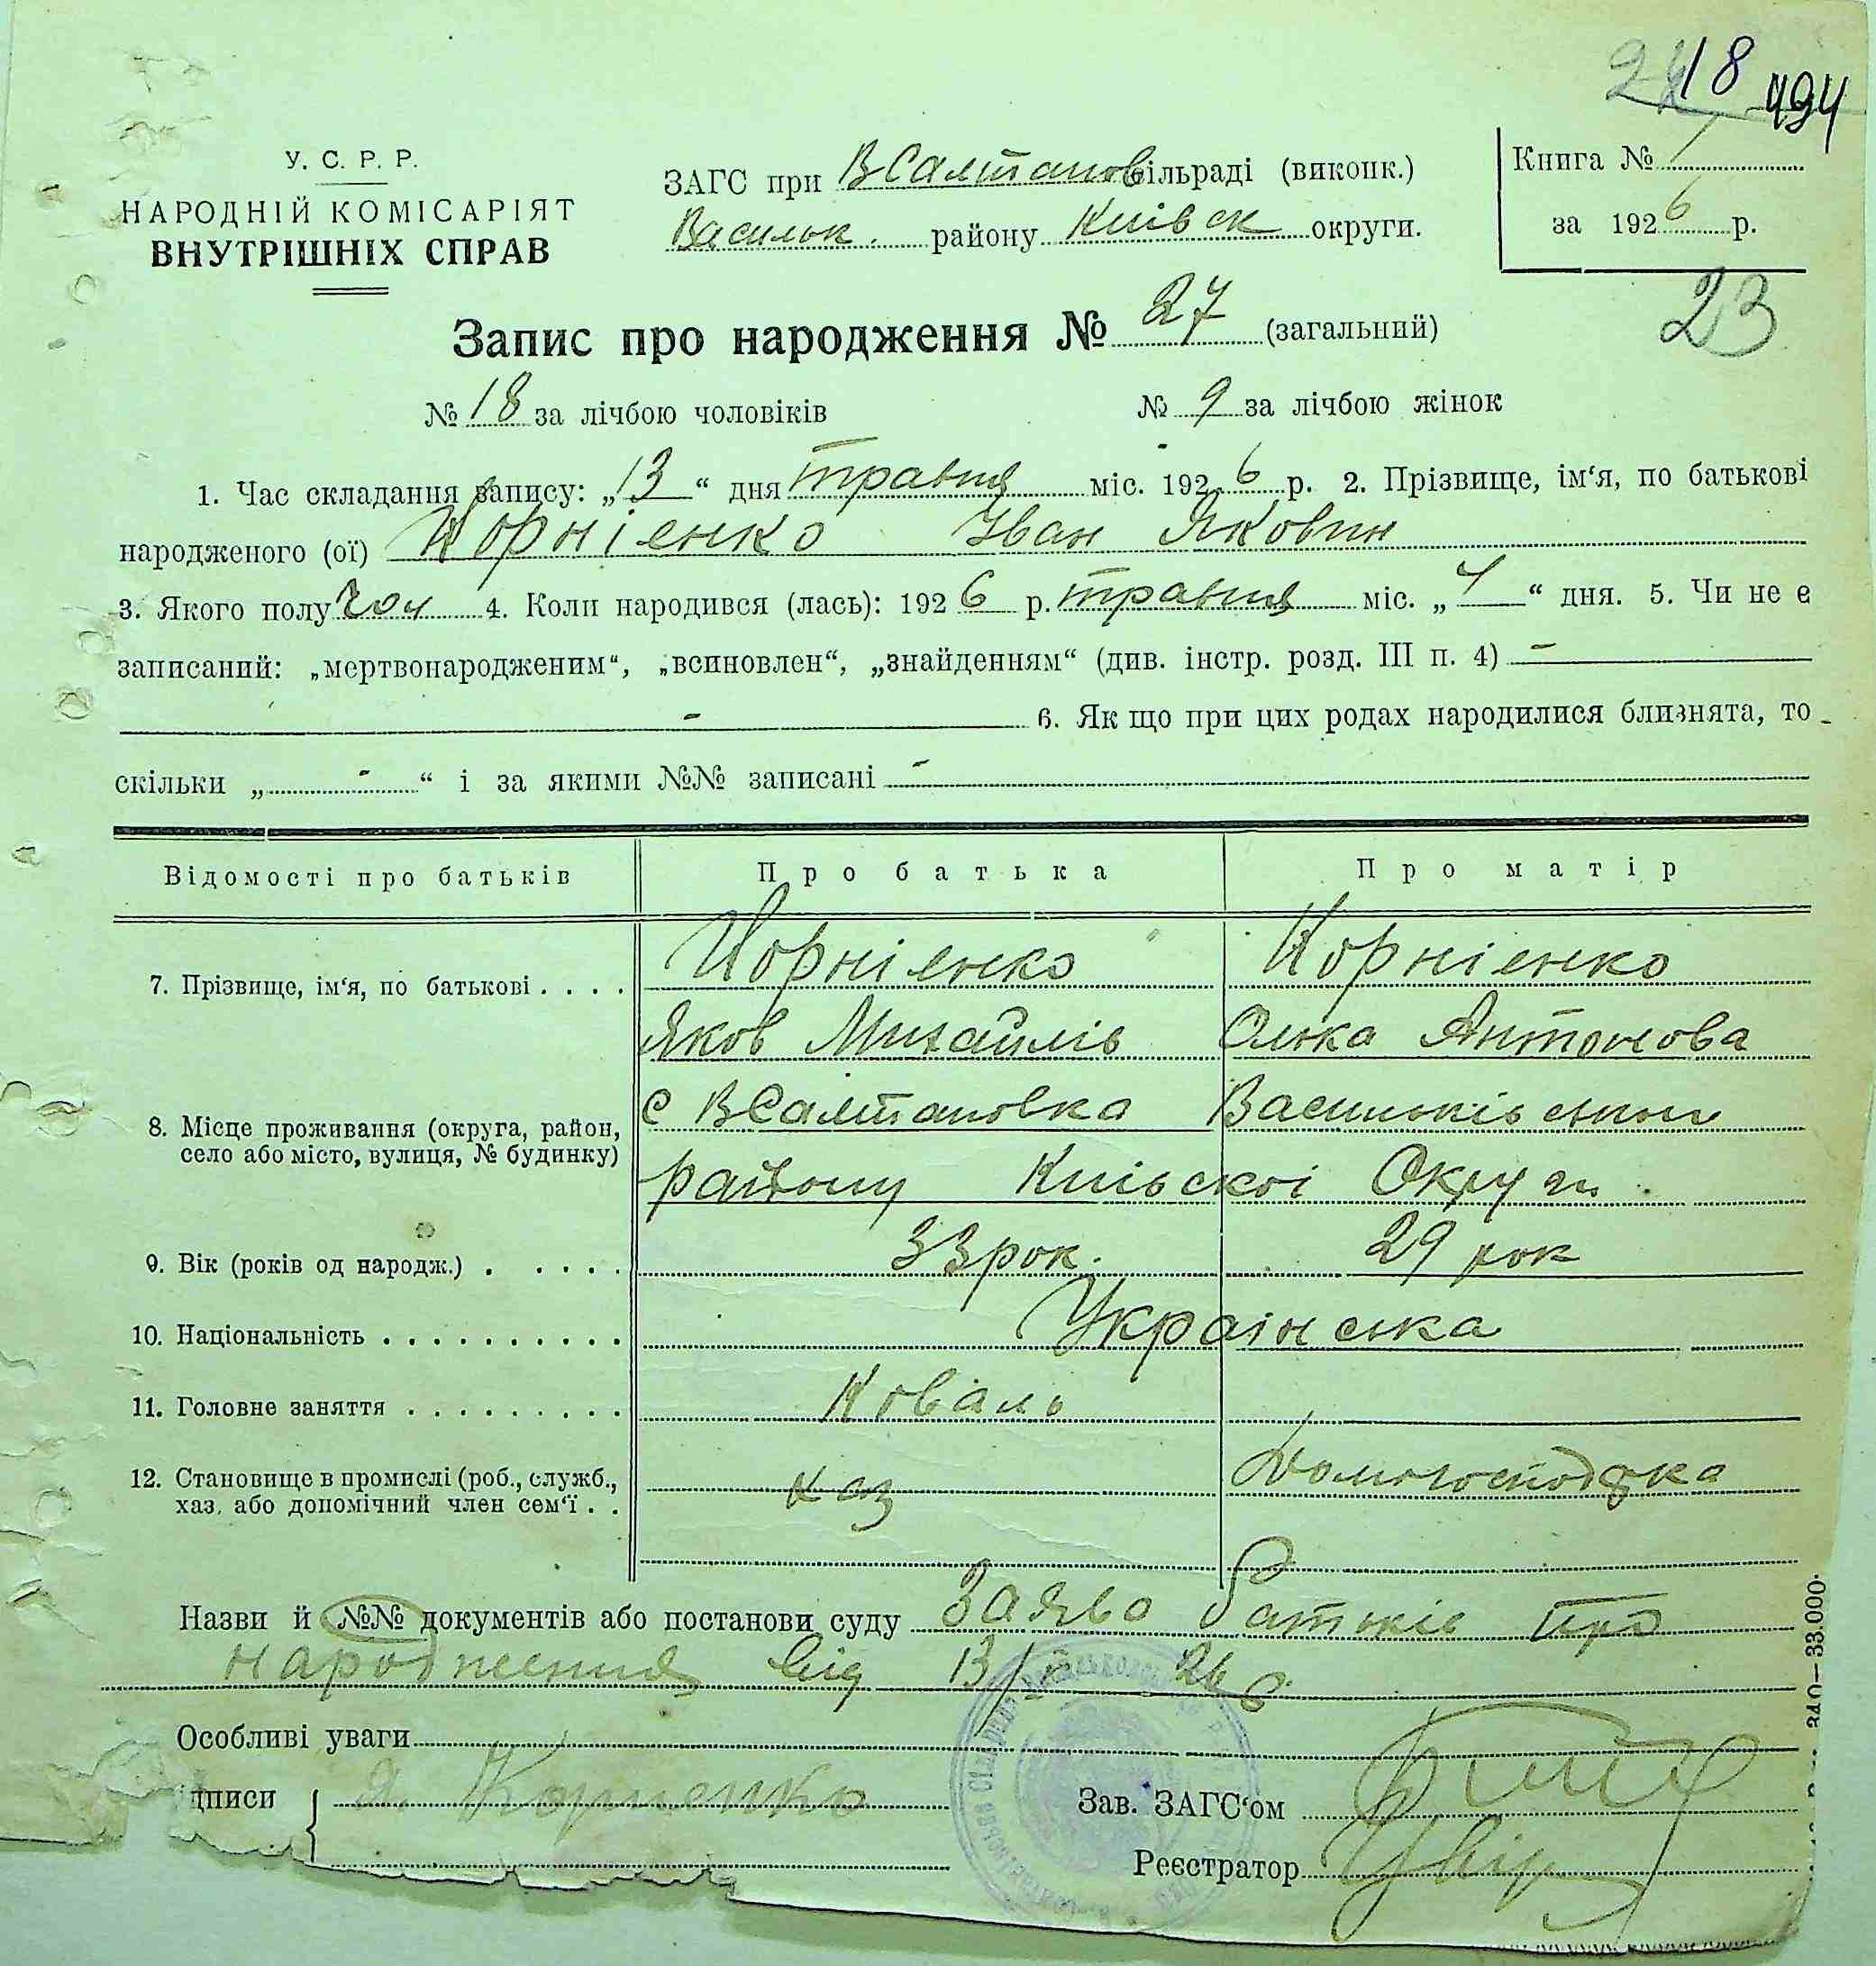 18 494
У. С. Р. Р.
НАРОДНІЙ КОМІСАРІЯТ
ВНУТРІШНІХ СПРАВ
ЗАГС при ВСалтановсільраді (виконк.)
Васильк. району Київск округи.
Книга № 1
за 1926 р.
23
Запис про народження № 27 (загальний)
№ 18 за лічбою чоловіків № 9 за лічбою жінок
1. Час складання запису: „13“ дня травня міс. 1926 р. 2. Прізвище, ім‘я, по батькові
народженого (ої) Корніенко Іван Яковин
3. Якого полу чол 4. Коли народився (лась): 1926 р. травня міс. „4“ дня. 5. Чи не є
записаний: „мертвонародженим“, „всиновлен“, „знайденням“ (див. інстр. розд. III п. 4) -
- 6. Як що при цих родах народилися близнята, то
скільки „-“ і за якими №№ записані -
Відомості про батьків Про батька Про матір
7. Прізвище, ім‘я, по батькові . . . . Корніенко Корніенко
Яков Михайлів Олька Антонова
8. Місце проживання (округа, район, с ВСалтановка Васильківського
село або місто, вулиця, № будинку) району Київскоі Округи.
9. Вік (років од народж.) . . . . . 33 рок. 29 рок
10. Національність . . . . . . . . . . Украінська
11. Головне заняття . . . . . . . . . Коваль
12. Становище в промислі (роб., служб., хаз Домогосподарка
хаз. або допомічний член сем‘ї . .
Назви й №№ документів або постанови суду Заява батьків про
народження від 13/V 26 р.
Особливі уваги
дписи Я. Корненко Зав. ЗАГС‘ом
Реєстратор
340—33.000.